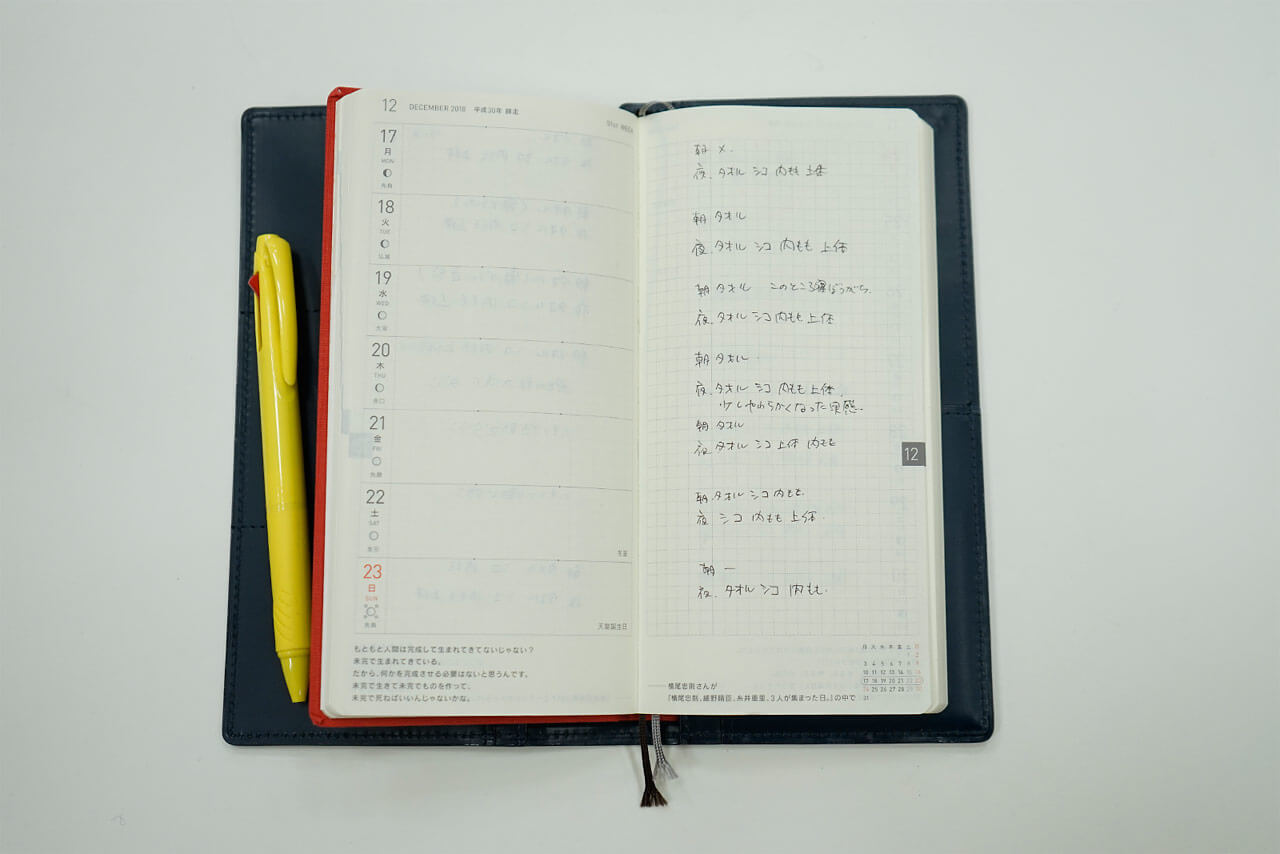 12 DECEMBER 2018 平成30年 師走
51st WEEK
17
月
MON
先負
18
火
TUE
仏滅
19
水
WED
大安
20
木
THU
赤口
21
金
FRI
先勝
22
土
SAT
友引
冬至
23
日
SUN
先負
天皇誕生日
もともと人間は完成して生まれてきてないじゃない?
未完で生まれてきている。
だから、何かを完成させる必要はないと思うんです。
未完で生きて未完でものを作って、
未完で死ねばいいんじゃないかな。
朝 ×.
夜. タオル シコ 内もも 上体
朝 タオル
夜. タオル シコ 内もも 上体
朝 タオル このところ寝ぼうがち.
夜. タオル シコ 内もも 上体
朝 タオル.
夜. タオル シコ 内もも 上体.
少しやわらかくなった実感.
朝 タオル
夜. タオル シコ 上体 内もも
朝. タオル シコ 内もも
夜 シコ 内もも 上体.
朝 ー
夜. タオル シコ 内もも.
12
月 火 水 木 金 土 日
1 2
3 4 5 6 7 8 9
10 11 12 13 14 15 16
17 18 19 20 21 22 23
24 25 26 27 28 29 30
31
——横尾忠則さんが
『横尾忠則、細野晴臣、糸井重里、3人が集まった日。』の中で